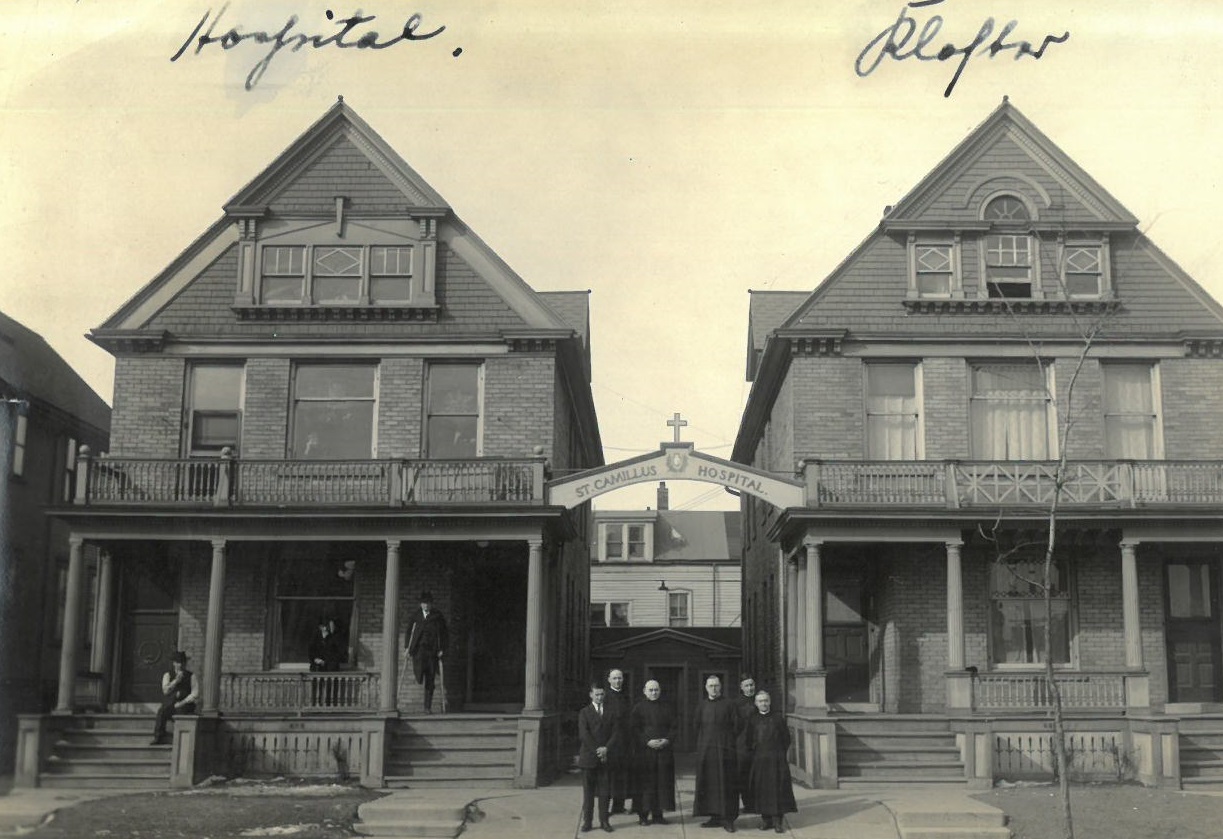 Hospital.
Kloster
ST. CAMILLUS HOSPITAL.